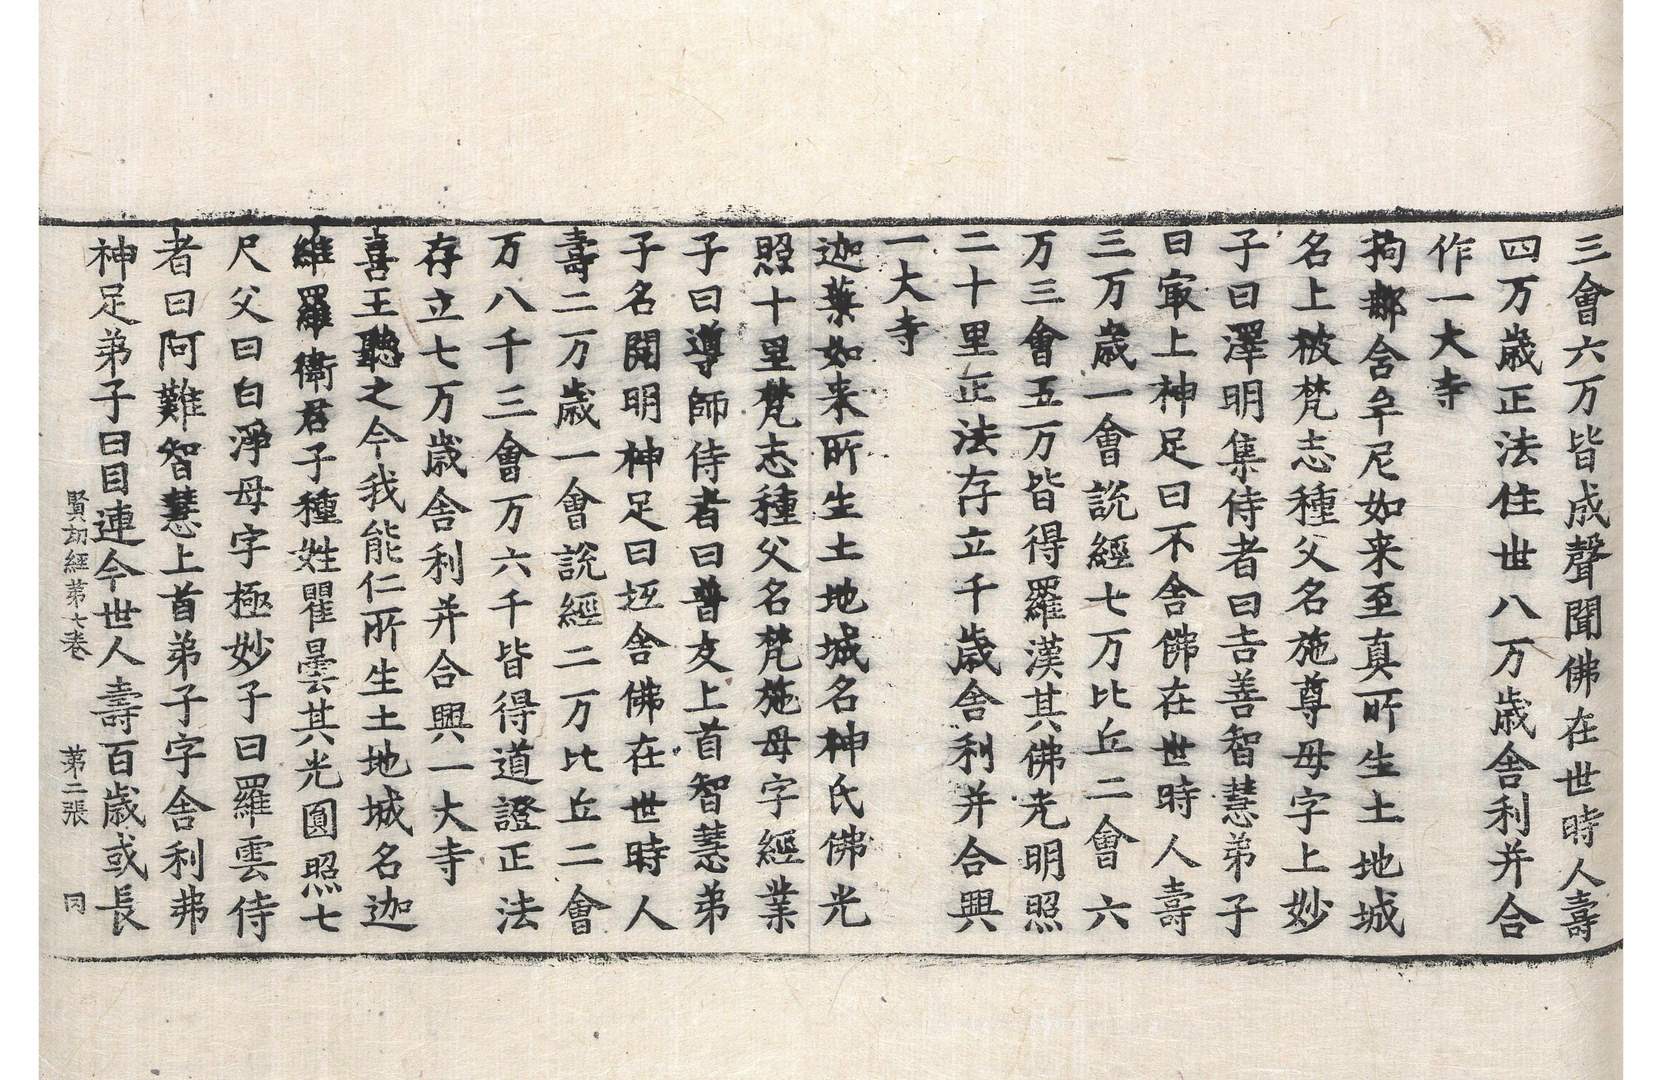 三會六万皆成聲聞佛在世時人壽
四万歳正法住世八万歳舎利并合
作一大寺
拘那含牟尼如来至真所生土地城
名上被梵志種父名施尊母字上妙
子曰澤明集侍者曰吉善智慧弟子
曰冣上神足曰不舍佛在世時人壽
三万歳一會說經七万比丘二會六
万三會五万皆得羅漢其佛光明照
二十里正法存立千歳舎利并合興
一大寺
迦葉如来所生土地城名神氏佛光
照十里梵志種父名梵施母字經業
子曰導師侍者曰普友上首智慧弟
子名閱明神足曰抂舍佛在世時人
壽二万歳一會說經二万比丘二會
万八千三會万六千皆得道證正法
存立七万歳舎利并合興一大寺
喜王聽之今我能仁所生土地城名迦
維羅衛君子種姓瞿曇其光圓照七
尺父曰白淨母字極妙子曰羅雲侍
者曰阿難智慧上首弟子字舍利弗
神足弟子曰目連今世人壽百歳或長
賢劫經第七卷 第二張 同